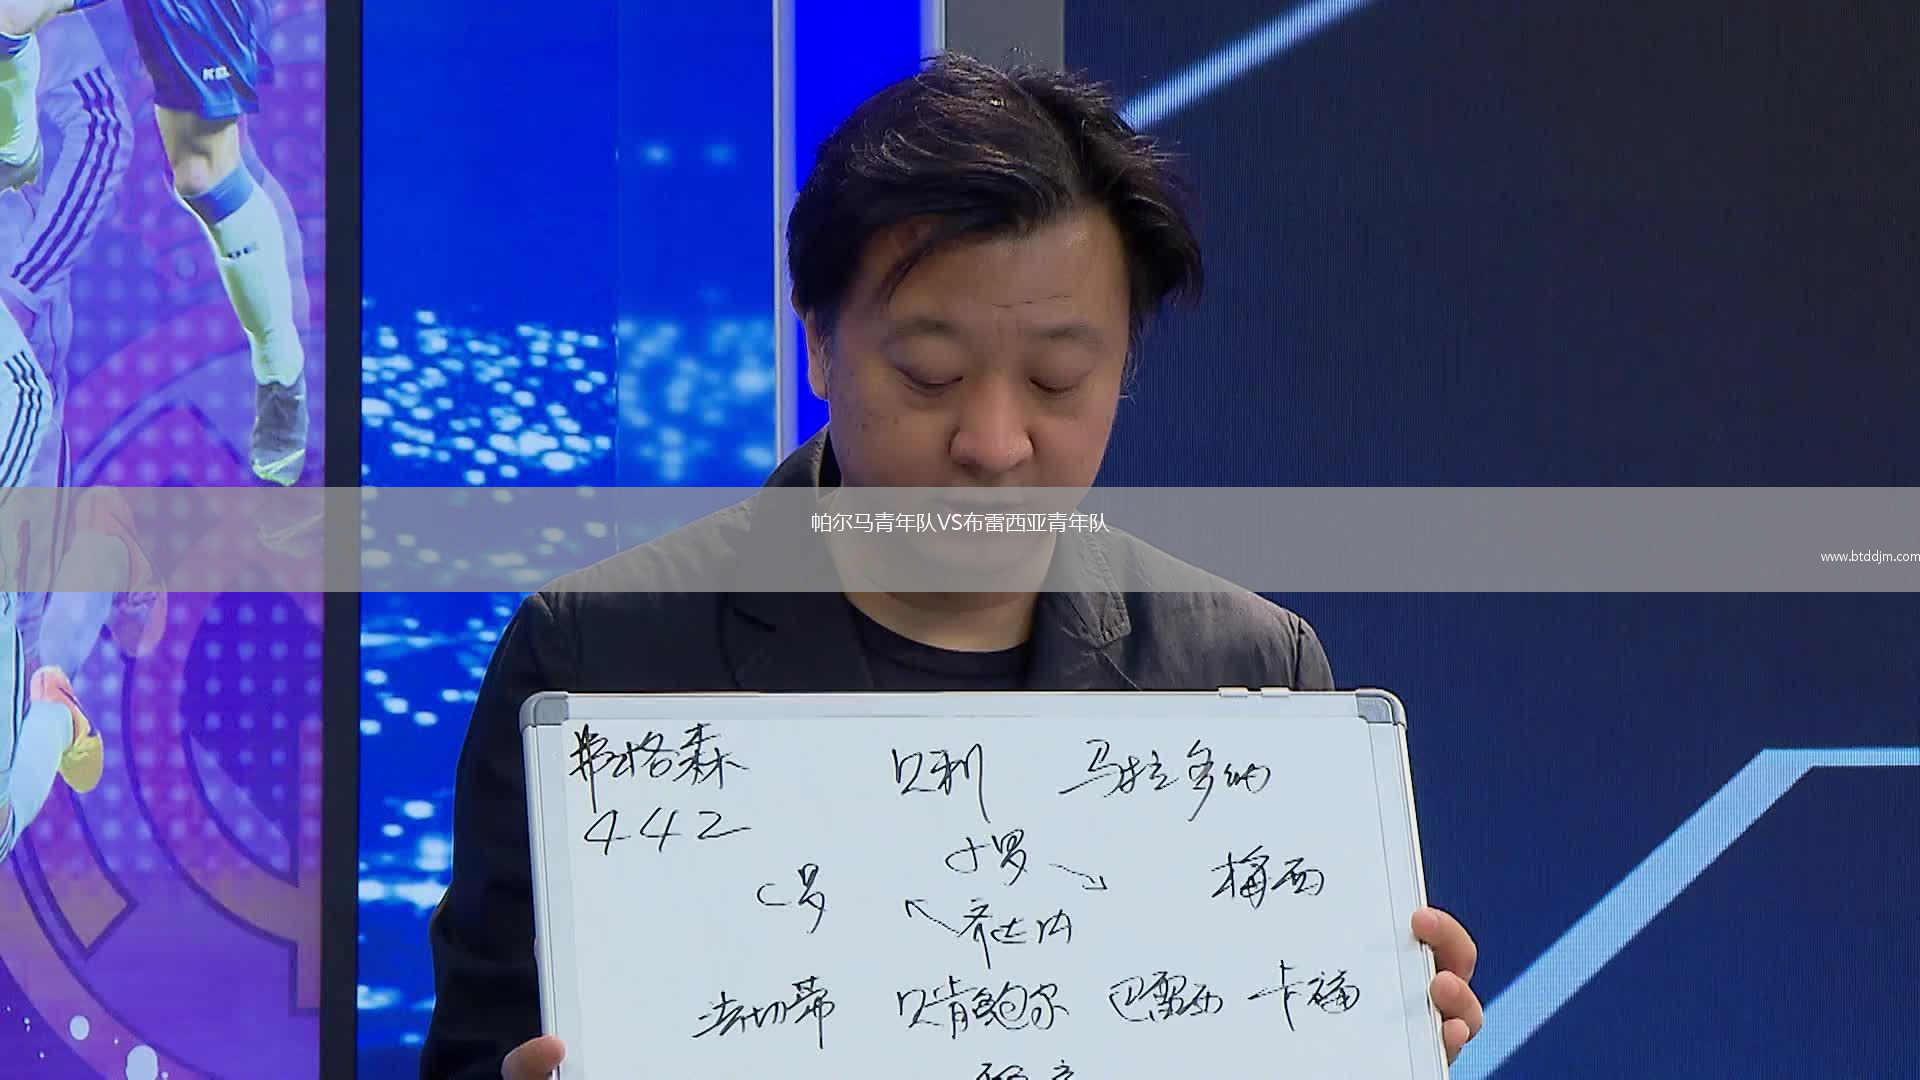 帕尔马青年队VS布雷西亚青年队
www.btddjm.com
弗格森 贝利 马拉多纳
442
小罗
C罗 梅西
齐达内
法切蒂 贝肯鲍尔 巴雷西 卡福